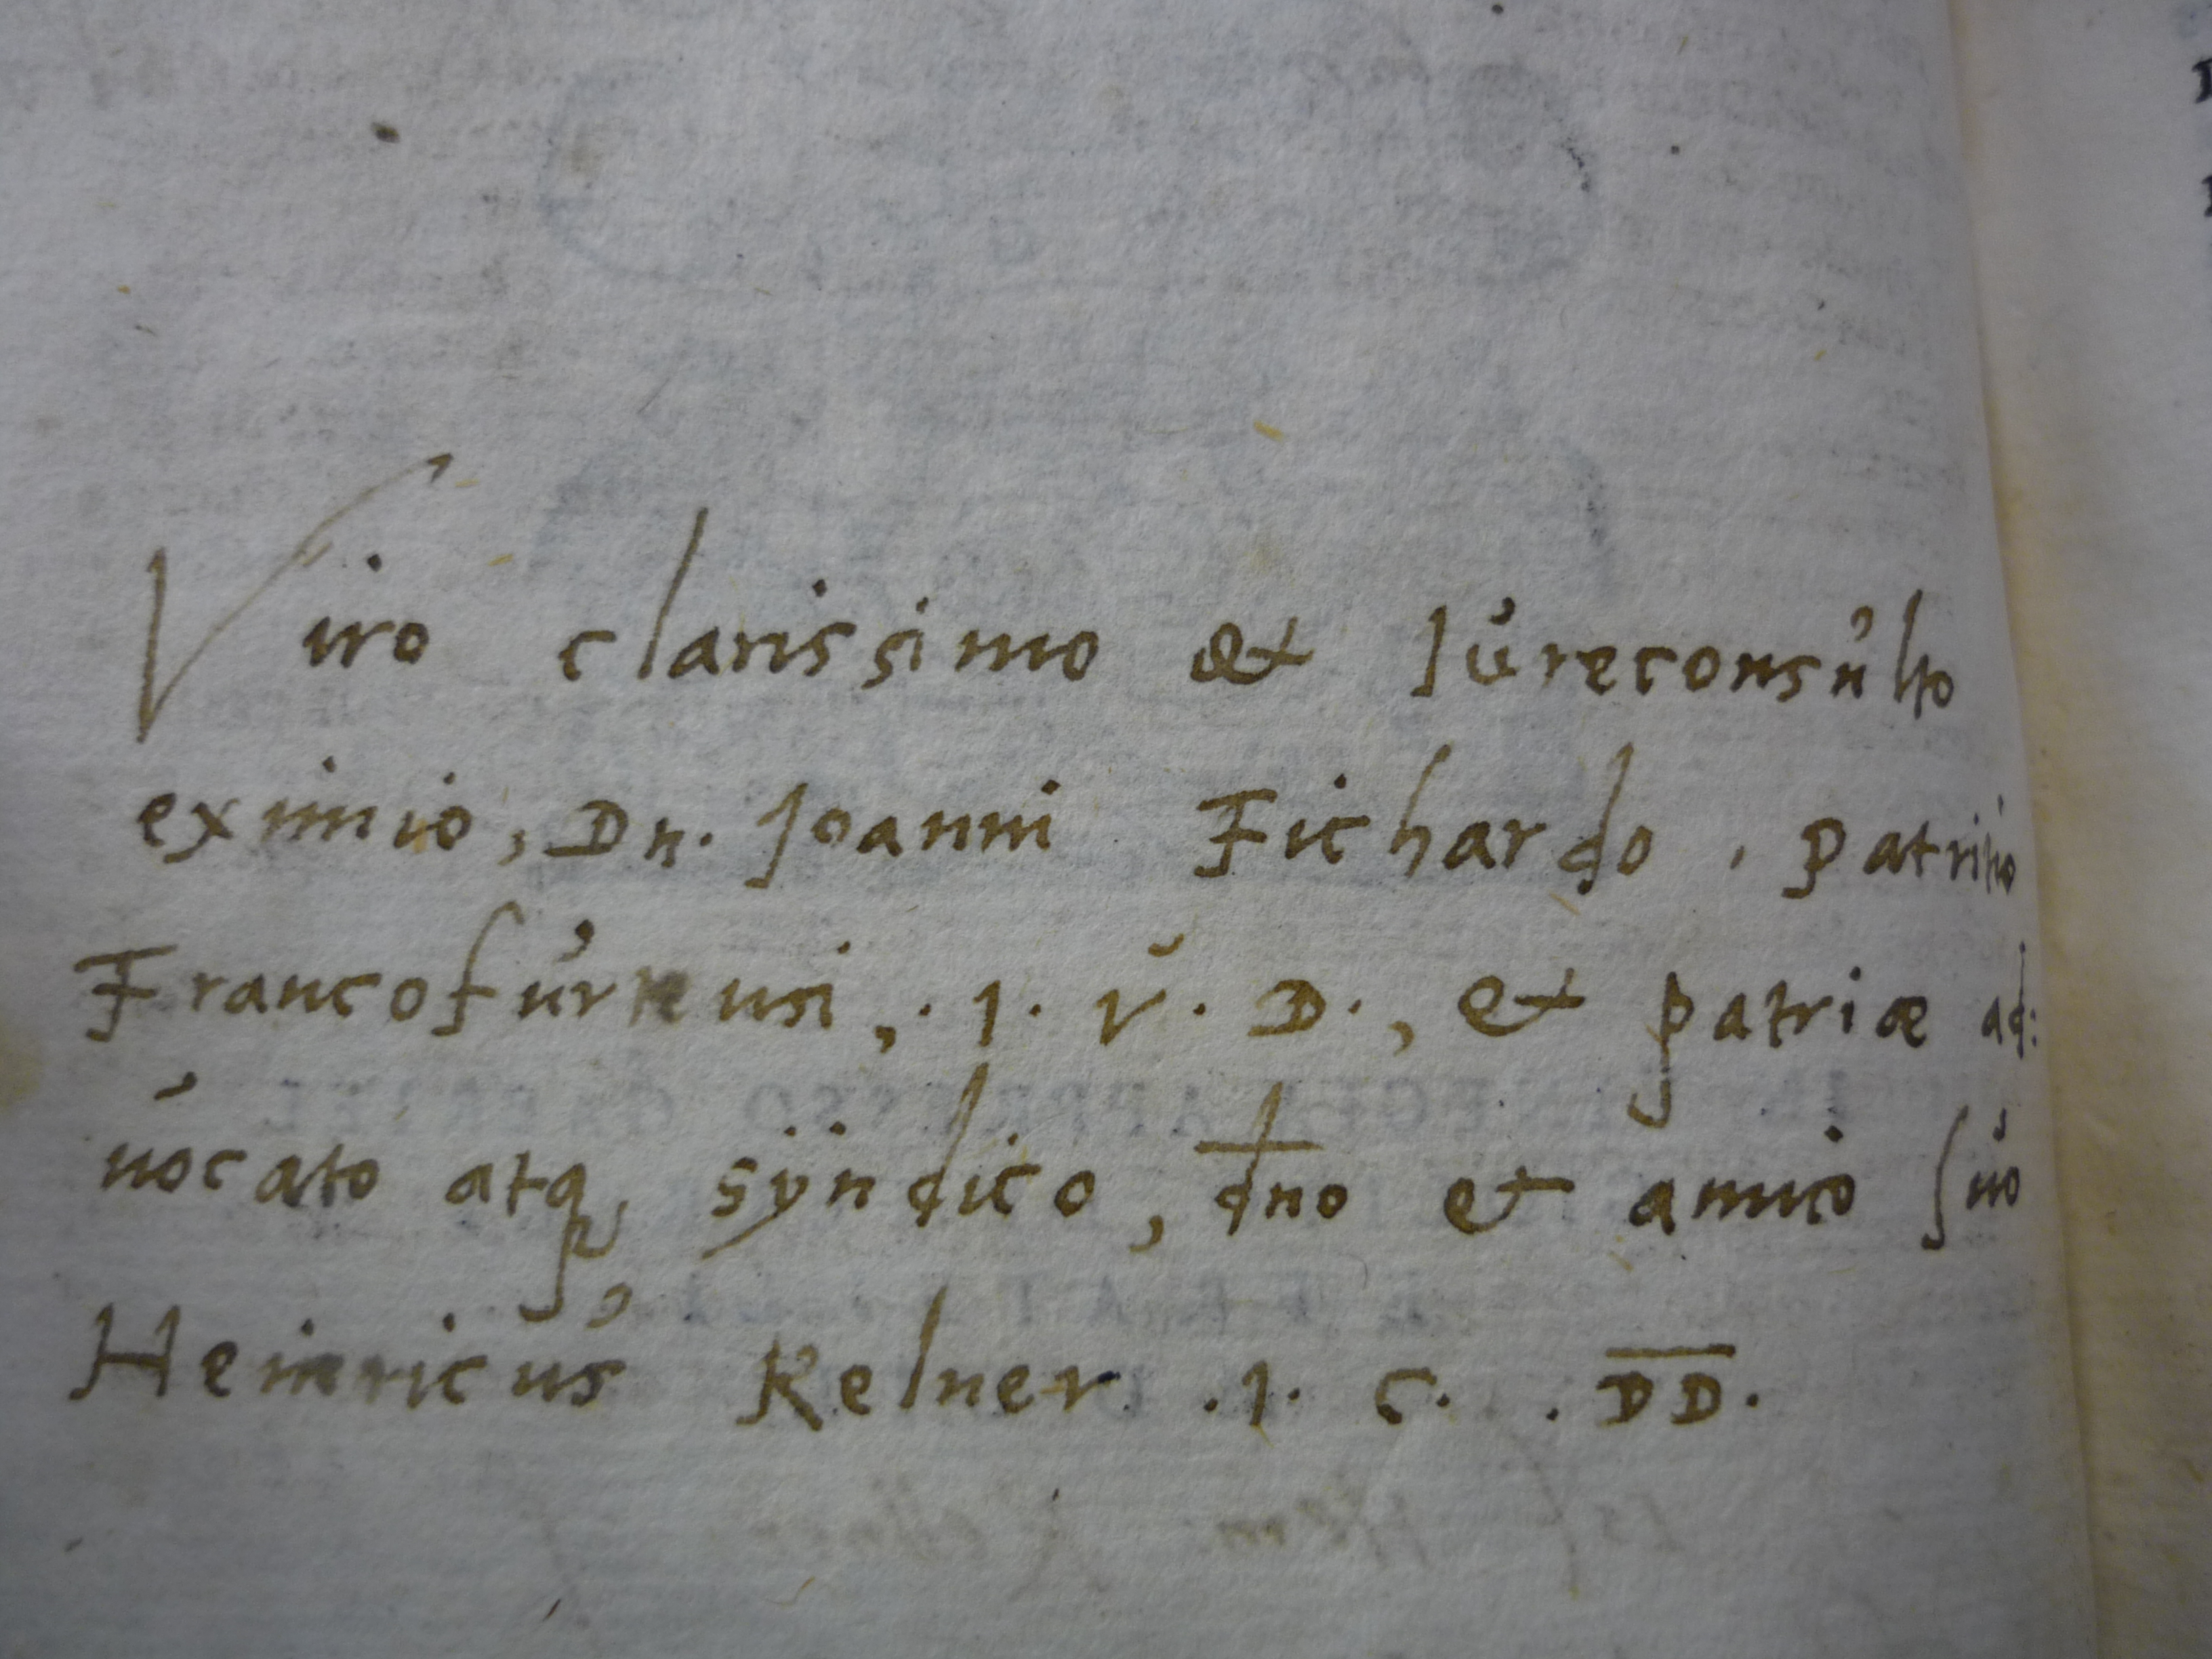 Viro clarissimo et Jureconsulto
eximio, Dn. Joanni Fichardo, patritio
Francofurtensi, .I. V. D., et patriæ ad:
uocato atq, syndico, dno et amico suo
Heinricus Kelner .I. C. .DD.